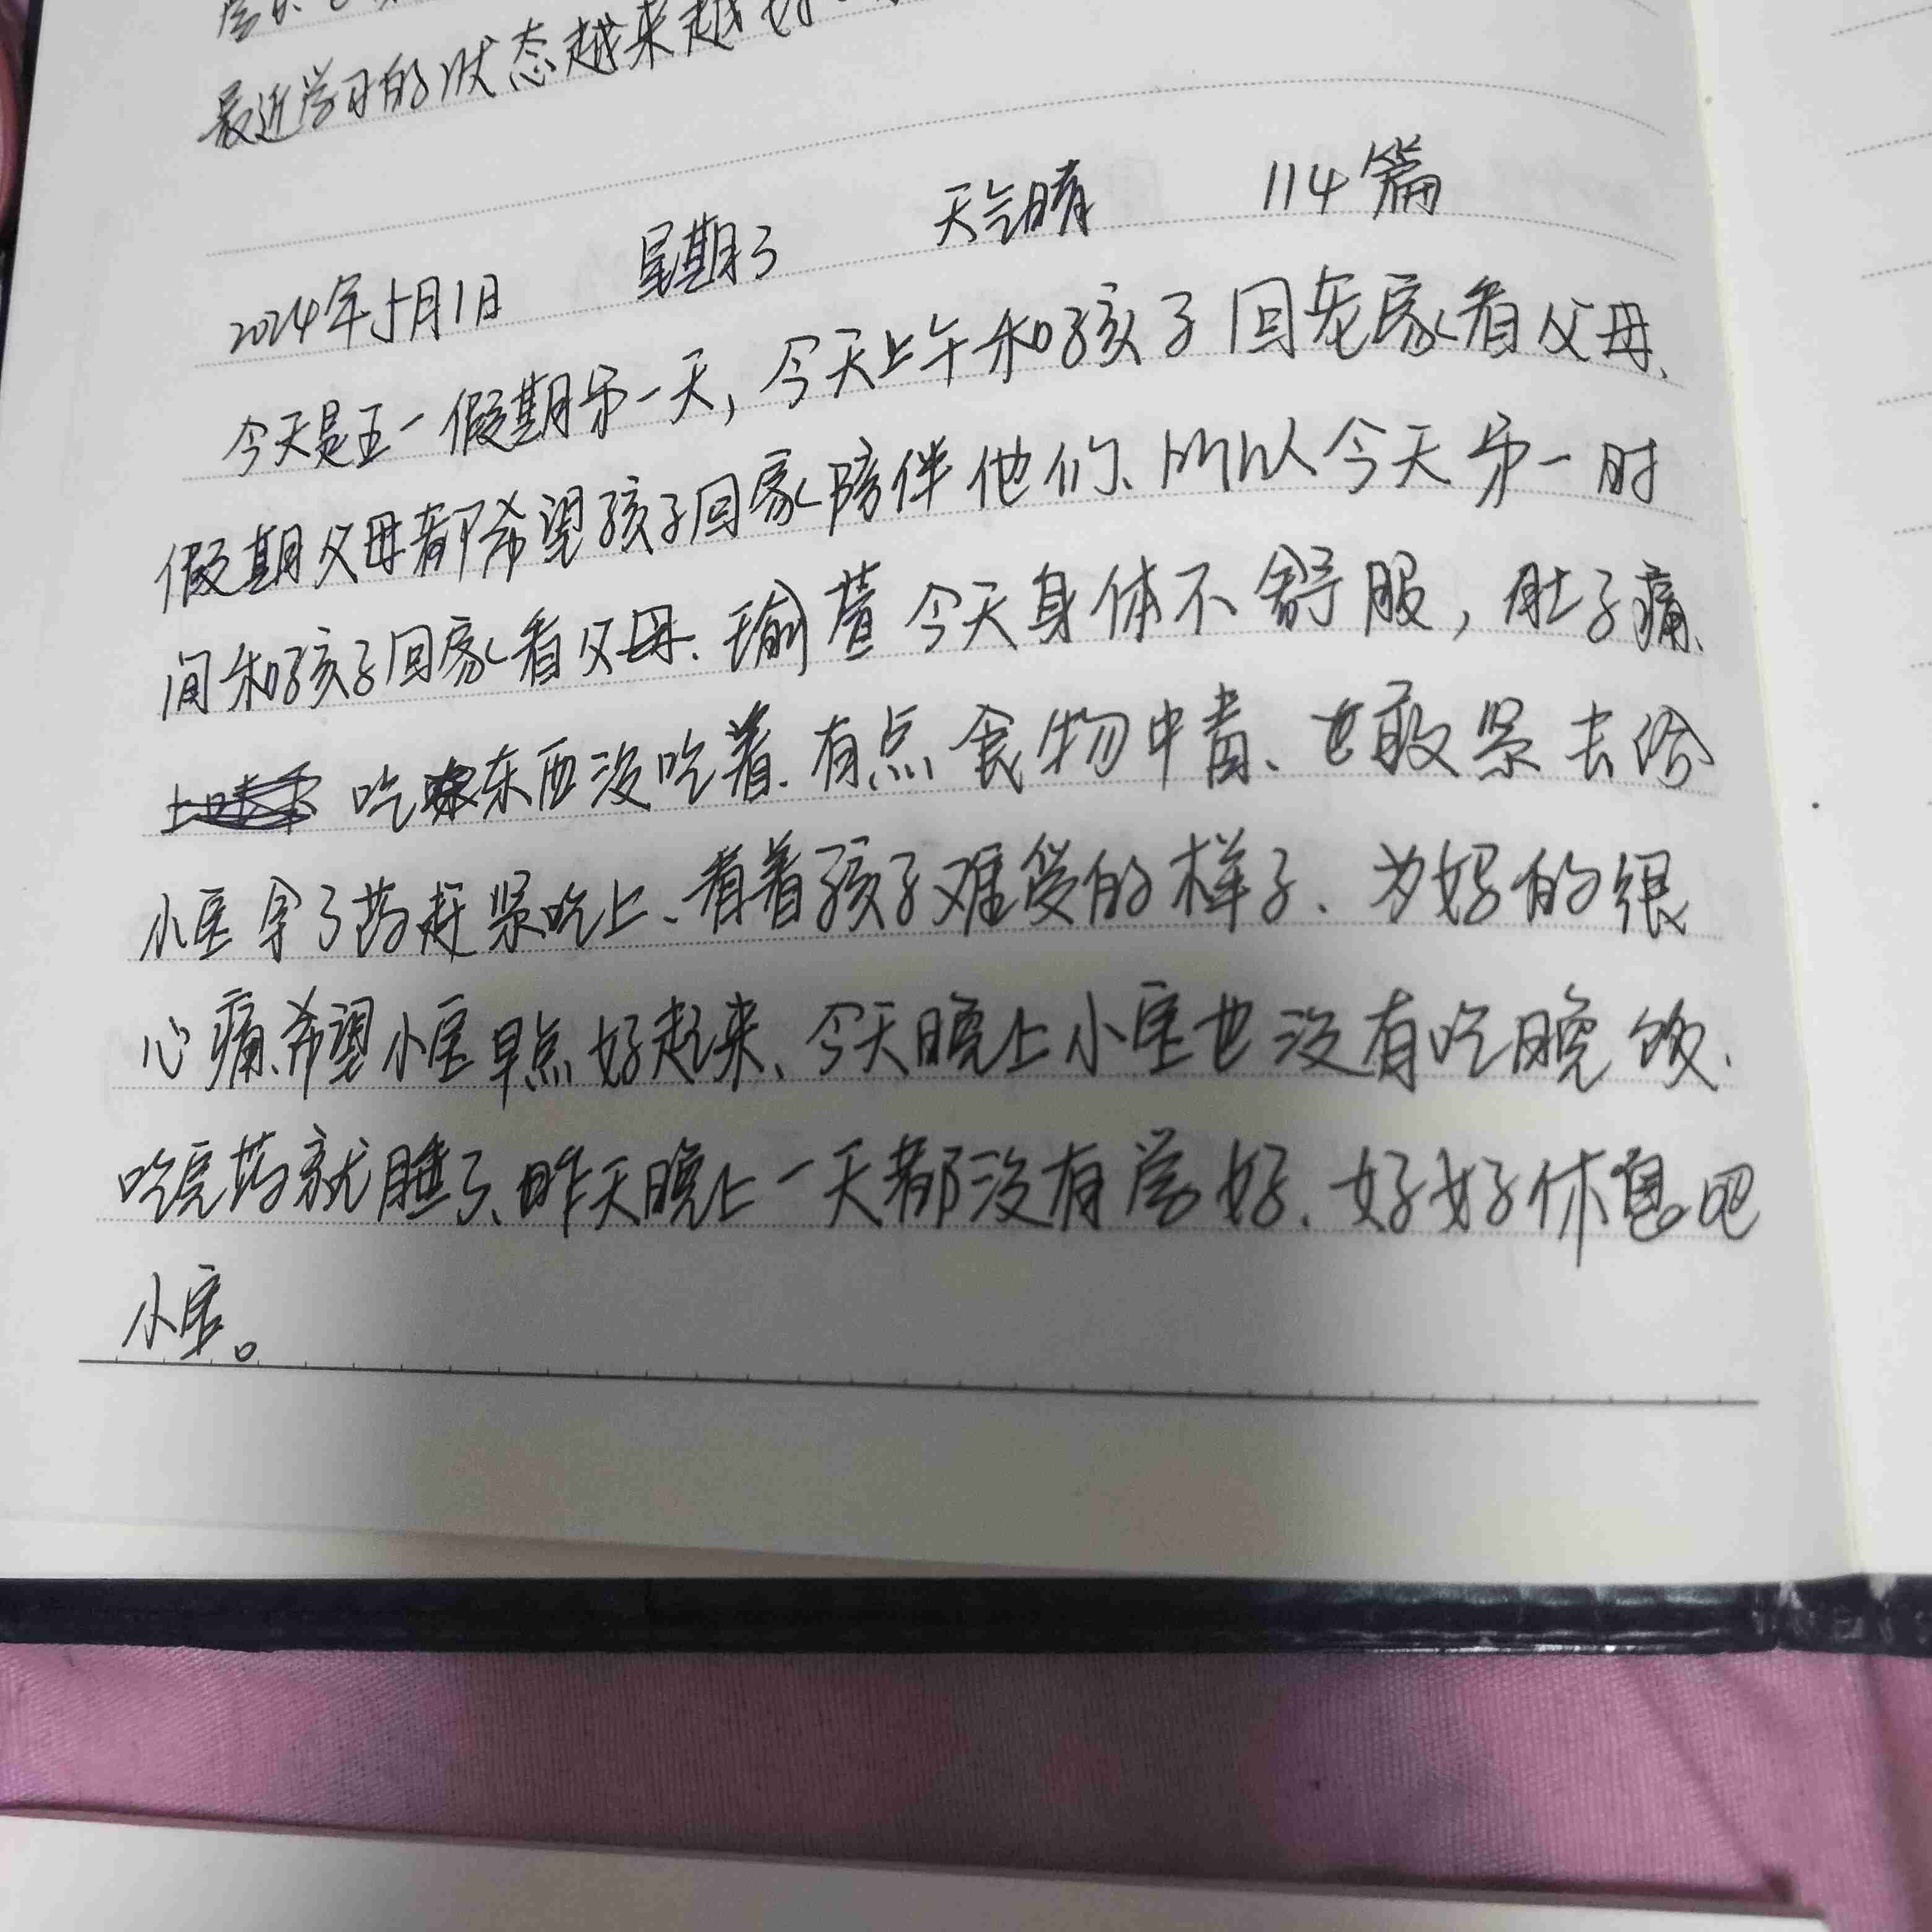 最近学习的状态越来越好
2024年5月1日 星期三 天气晴 114篇
今天是五一假期第一天，今天上午和孩子回老家看父母、
假期父母都希望孩子回家陪伴他们、所以今天第一时
间和孩子回家看父母.瑜萱今天身体不舒服，肚子痛、
吃东西没吃着.有点食物中毒、也敢紧去给
小宝拿了药赶紧吃上、看着孩子难受的样子、为妈的很
心痛、希望小宝早点好起来、今天晚上小宝也没有吃晚饭、
吃完药就睡了、昨天晚上一天都没有学好、好好休息吧
小宝。